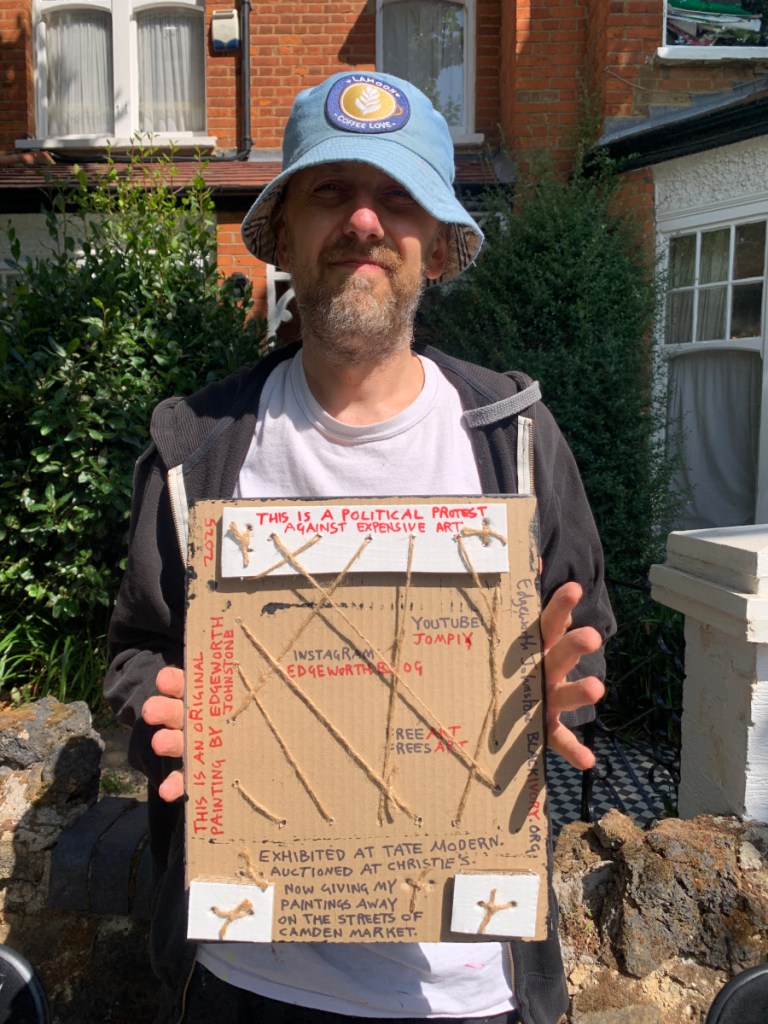 LAMOON
COFFEE LOVE
THIS IS A POLITICAL PROTEST
AGAINST EXPENSIVE ART
2025
THIS IS AN ORIGINAL
PAINTING BY EDGEWORTH
JOHNSTONE
YOUTUBE
JOMPIY
INSTAGRAM
EDGEWORTHBLOG
FREE ART
FREES ART
Edgeworth Johnstone BLACKIVORY.ORG
EXHIBITED AT TATE MODERN.
AUCTIONED AT CHRISTIE'S.
NOW GIVING MY
PAINTINGS AWAY
ON THE STREETS OF
CAMDEN MARKET.